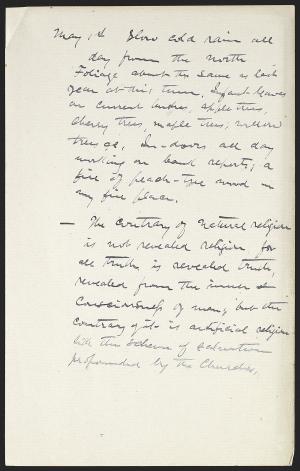 May 1st Slow cold rain all
day from the north
Foliage about the same as last
year at this time. Infant leaves
on currant bushes, apple trees,
cherry trees, maple trees, willow
trees &c. In-doors all day
working on bank reports; a
fire of peach-tree wood in
my fire place.
— The contrary of natural religion
is not revealed religion for
all truth is revealed truth,
revealed from the inner
consciousness of man; but the
contrary of it is artificial religion
like the scheme of salvation
propounded by the Churches.